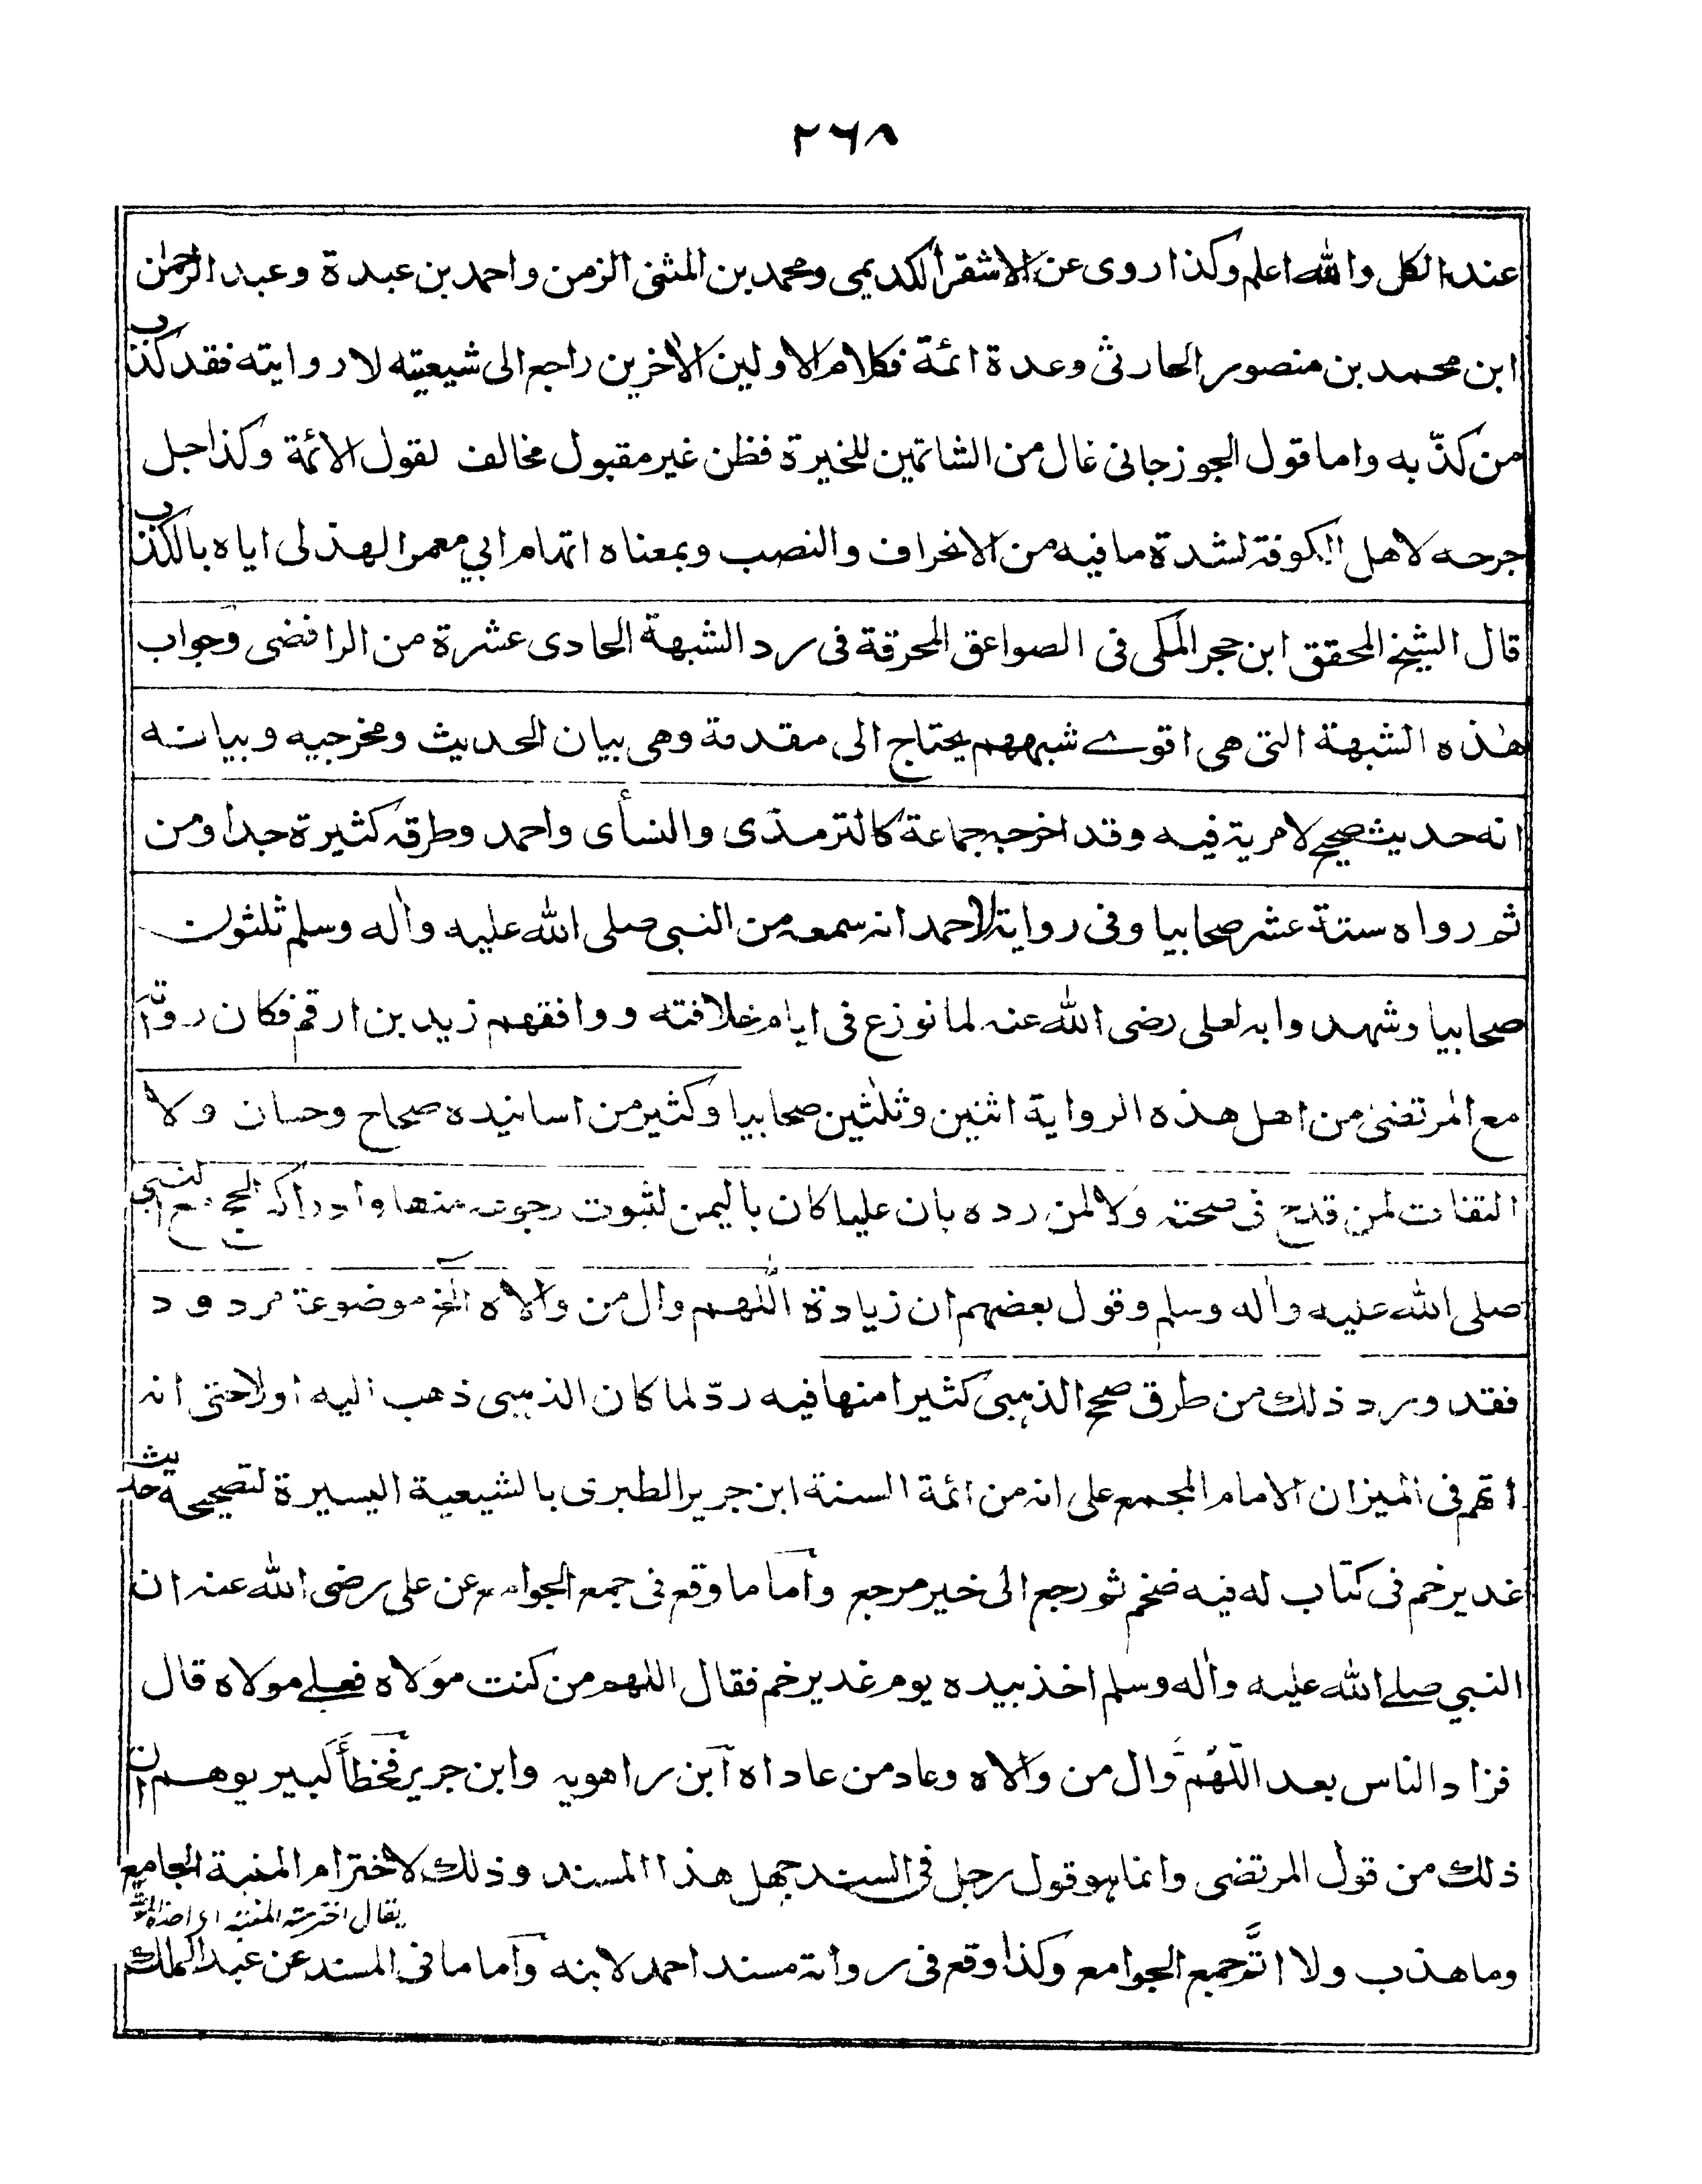 ٢٦٨
عند الكل والله اعلم وكذا روى عن الاشقر الكديمى ومحمد بن المثنى الزمن واحمد بن عبدة وعبد الرحمن
ابن محمد بن منصور الحارثى وعدة ائمة فكلام الاولين الاٰخرين راجع الى شيعيته لا روايته فقد كذب
من كذّبه واما قول الجوزجانى غال من الشاتمين للخيرة فظن غير مقبول مخالف لقول الائمة وكذا جل
جرحه لاهل الكوفة لشدة ما فيه من الانحراف والنصب وبمعناه اتهام ابي معمر الهذلى اياه بالكذب
قال الشيخ المحقق ابن حجر المكى فى الصواعق المحرقة فى رد الشبهة الحادى عشرة من الرافضى وجواب
هٰذه الشبهة التى هى اقوے شبههم يحتاج الى مقدمة وهى بيان الحديث ومخرجيه وبيانه
انه حديث صحيح لا مرية فيه وقد اخرجه جماعة كالترمذى والنسأى واحمد وطرقه كثيرة جدا ومن
ثم رواه ستة عشر صحابيا وفى رواية لاحمد انه سمعه من النبى صلى الله عليه واٰله وسلم ثلٰثون
صحابيا وشهدوا به لعلى رضى الله عنه لما نوزع فى ايام خلافته ووافقهم زيد بن ارقم فكان رواة
مع المرتضىٰ من اهل هذه الرواية اثنين وثلٰثين صحابيا وكثير من اسانيده صحاح وحسان ولا
التفات لمن قدح فى صحته ولا لمن رده بان عليا كان باليمن لثبوت رجوعه منها وادراكه الحج مع النبي
صلى الله عليه واٰله وسلم وقول بعضهم ان زيادة اللّٰهم وال من والاه الخ موضوعة مردود
فقد ورد ذلك من طرق صحح الذهبى كثيرا منها فيه ردّ لما كان الذهبى ذهب اليه اولا حتى انه
اتهم فى الميزان الامام المجمع على انه من ائمة السنة ابن جرير الطبرى بالشيعية اليسيرة لتصحيحه حديث
غدير خم فى كتاب له فيه ضخم ثم رجع الى خير مرجع وأما ما وقع فى جمع الجوامع عن على رضى الله عنه ان
النبي صلے الله عليه واٰله وسلم اخذ بيده يوم غدير خم فقال اللهم من كنت مولاه فعلے مولاه قال
فزاد الناس بعد اللّٰهُمَّ وال من والاه وعاد من عاداه ابن راهويه وابن جرير فخطأ كبير يوهم ان
ذلك من قول المرتضى وانما هو قول رجل فى السند جهل هذا المسند وذلك لاخترام المنية الجامع
يقال اخترمته المنية اى اخذته
وما هذب ولا اتمَّ جمع الجوامع وكذا وقع فى رواية مسند احمد لابنه وأما ما فى المسند عن عبد الملك